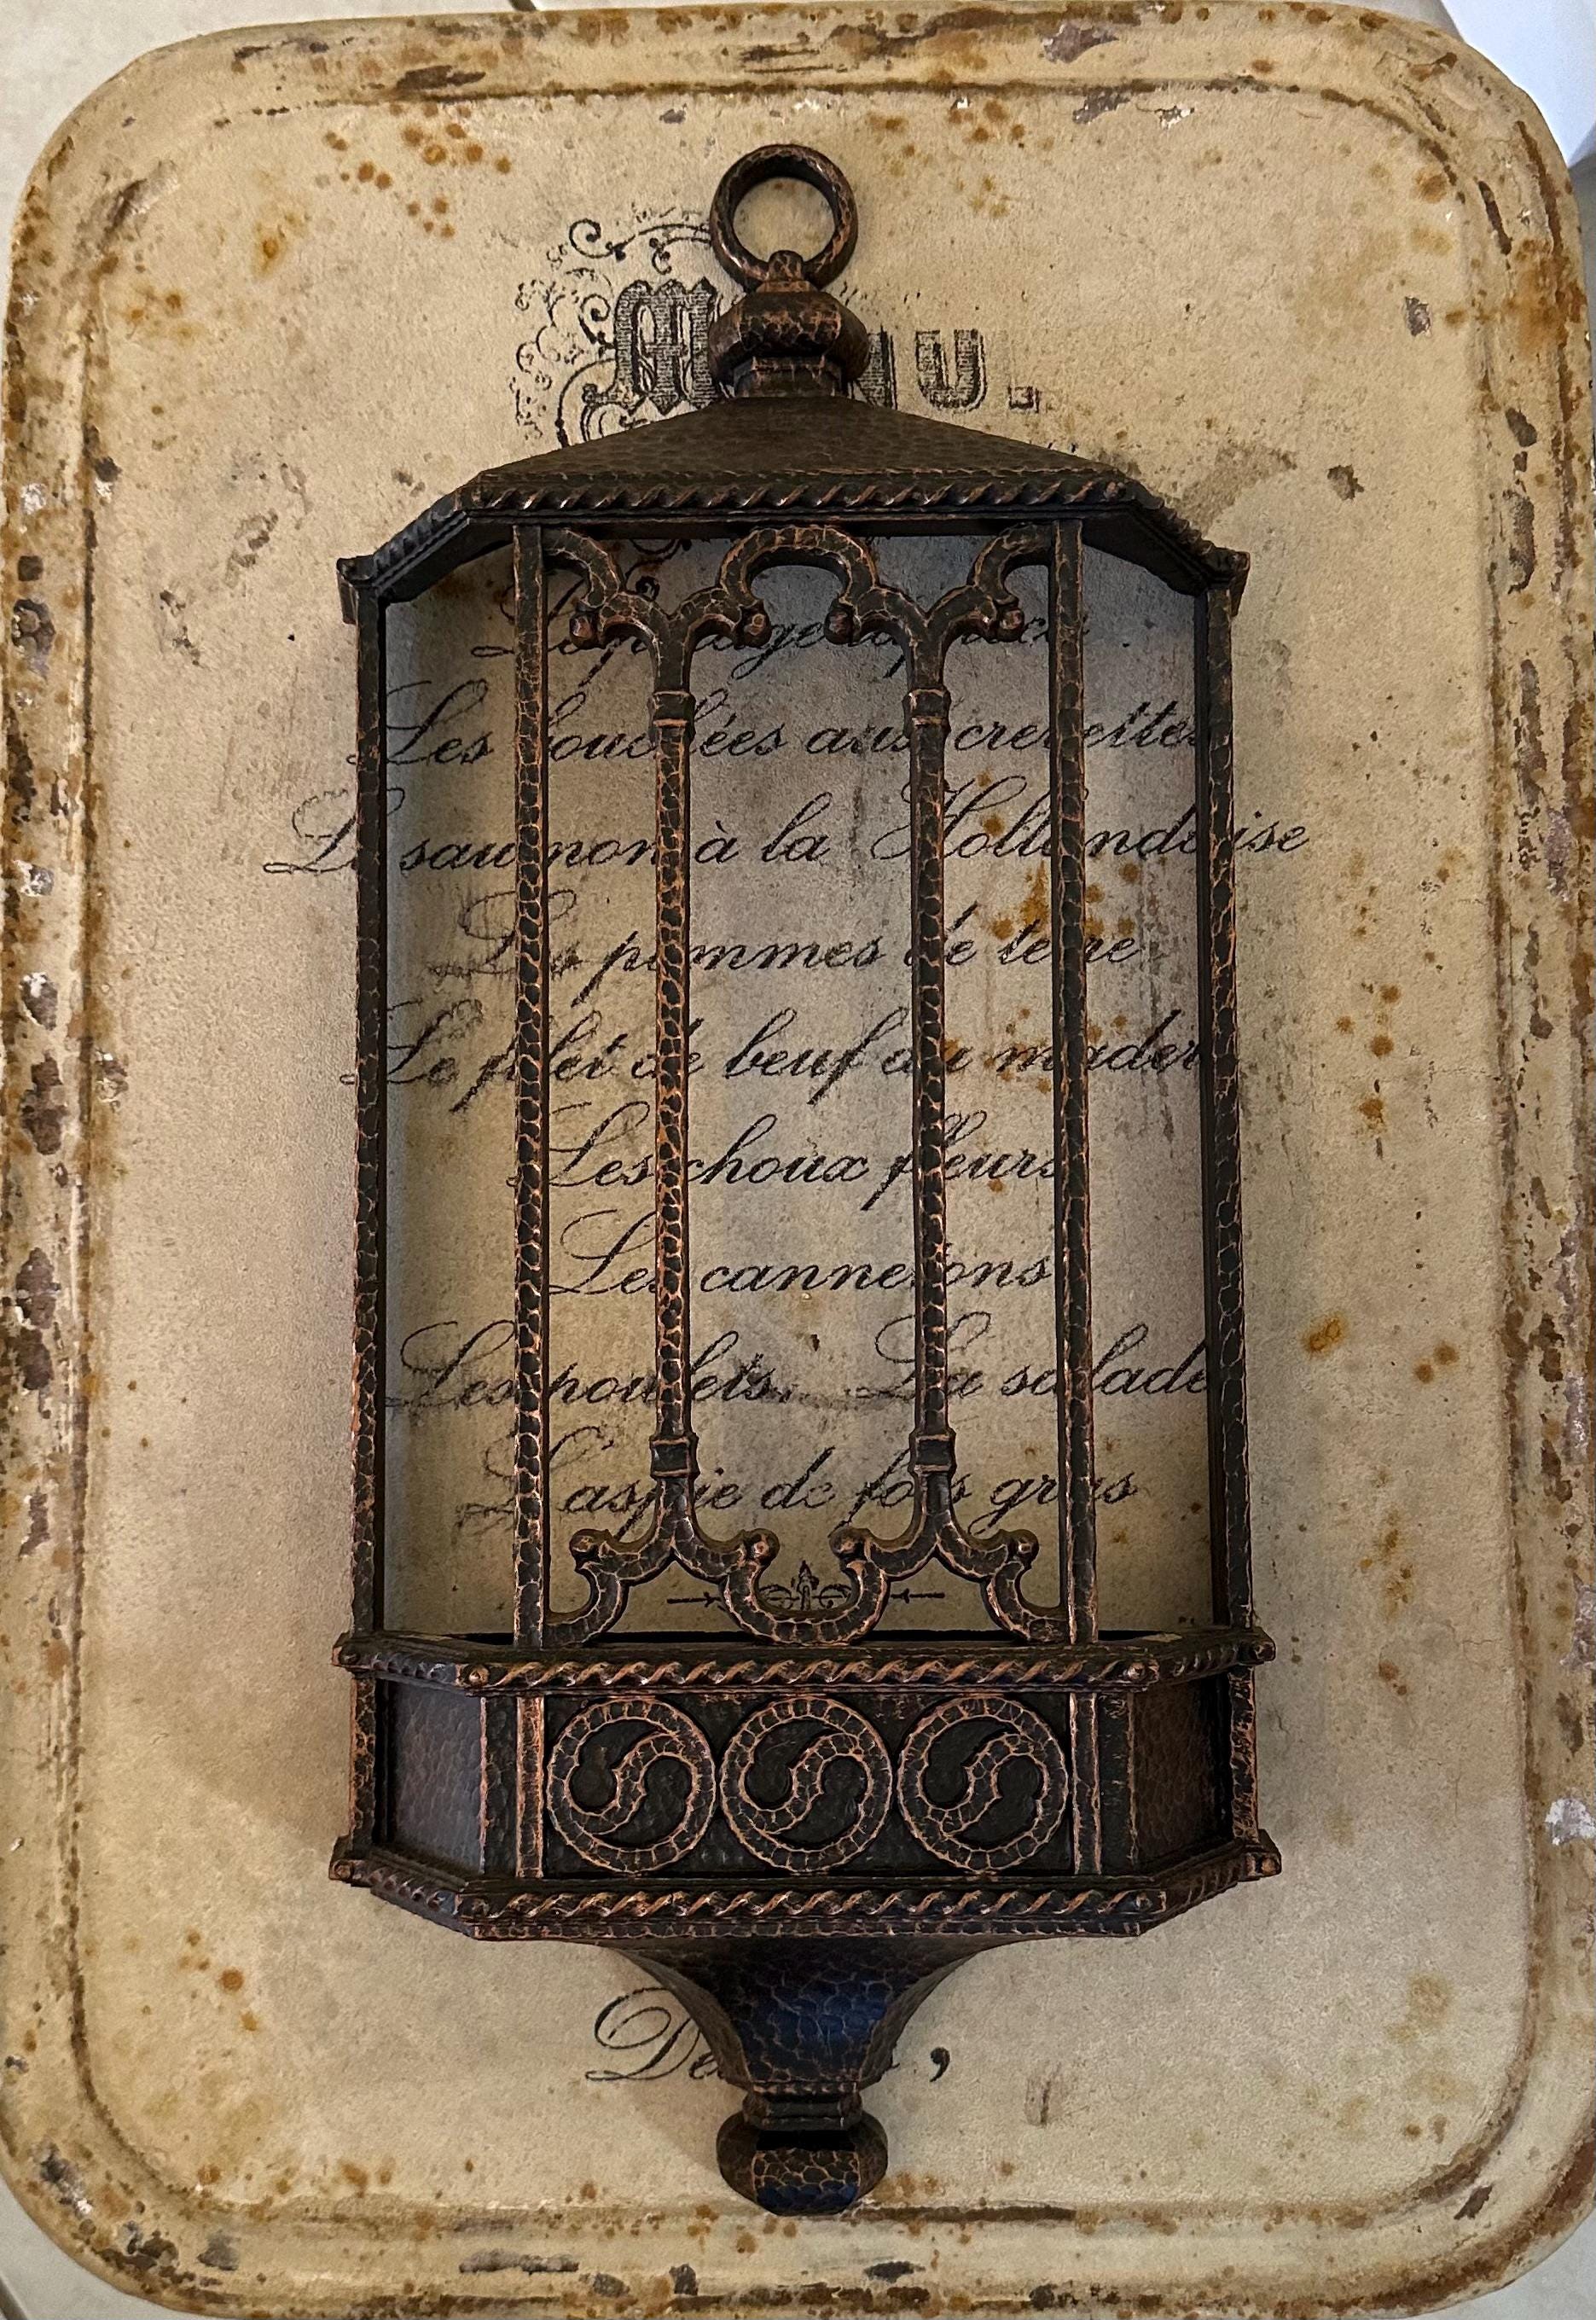 Menu.
Les bouchées aux crevettes
Le saumon à la Hollandaise
Les pommes de terre
Le filet de beuf au mader
Les choux fleurs
Les cannetons
Les poulets. La salade
L'aspic de fois gras